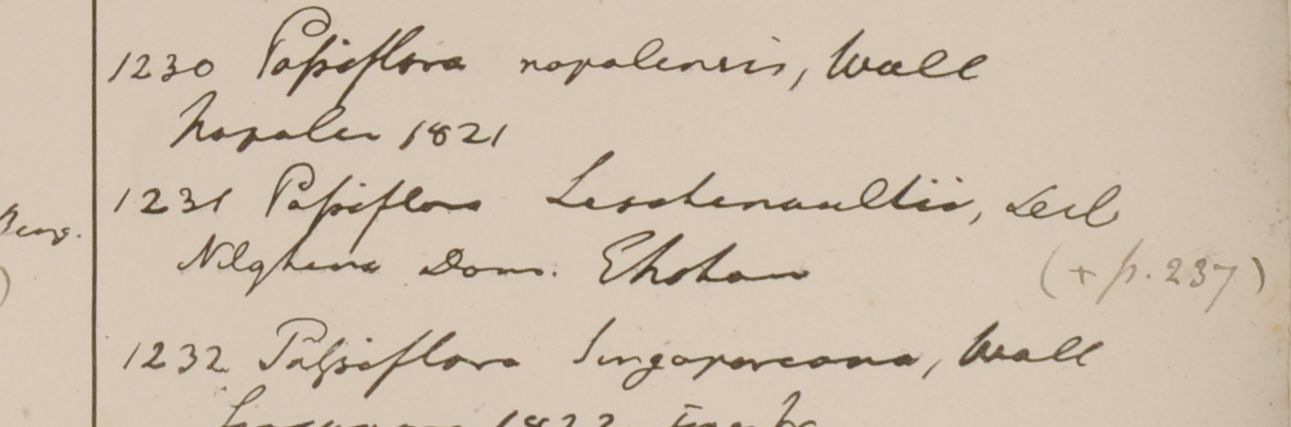 1230 Passiflora napalensis, Wall
Napalia 1821
1231 Passiflora Leschenaultii, Decb
Nilgherra Dom.
(+ p. 237)
1232 Passiflora Singaporeana, Wall
1822